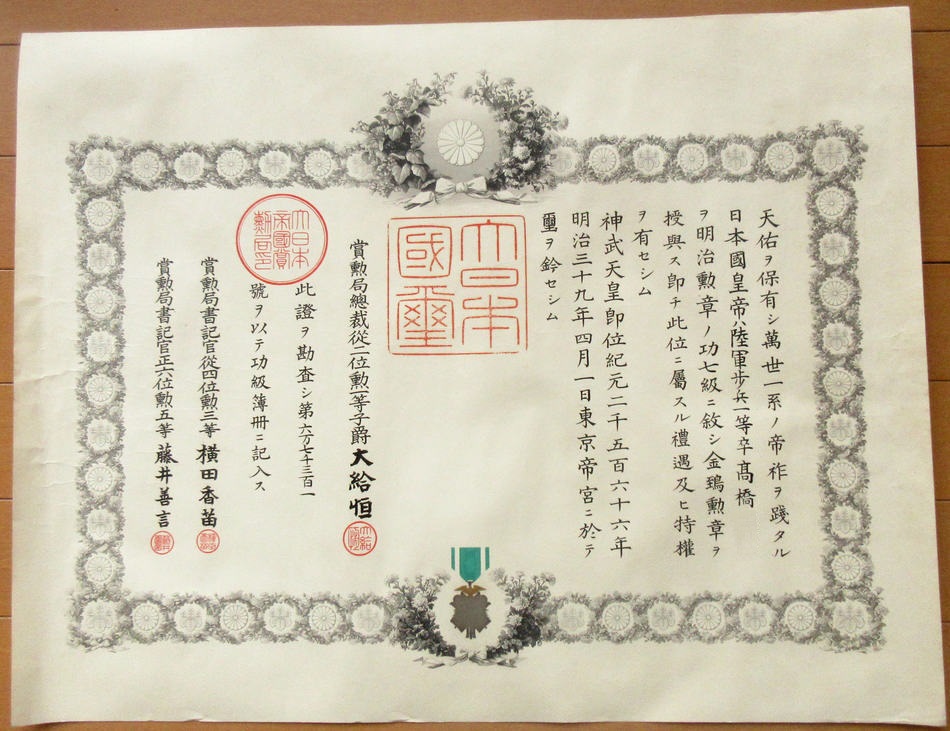 天佑ヲ保有シ萬世一系ノ帝祚ヲ踐タル
日本國皇帝ハ陸軍歩兵一等卒髙橋
ヲ明治勲章ノ功七級ニ敘シ金鵄勲章ヲ
授與ス即チ此位ニ屬スル禮遇及ヒ特權
ヲ有セシム
神武天皇即位紀元二千五百六十六年
明治三十九年四月一日東京帝宮ニ於テ
璽ヲ鈐セシム
大日本
國璽
賞勲局總裁從二位勲一等子爵大給恒
此證ヲ勘査シ第六万七千三百一
號ヲ以テ功級簿冊ニ記入ス
大日本
帝國賞
勲局印
賞勲局書記官從四位勲三等横田香苗
賞勲局書記官正六位勲五等藤井善言